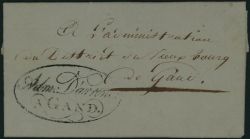 A L'administration
du District du Vieux bourg
de Gand.
Adm: D'arron:
A GAND.